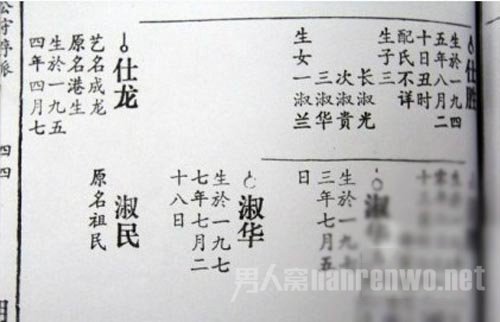 仕胜
生於一九四
五年八月二
十日丑时
配氏不详
生子三
长淑光
次淑貴
三淑华
生女一淑兰
仕龙
艺名成龙
原名港生
生於一九五
四年四月七
生於一九七
三年七月五
日
淑华
生於一九七
七年七月二
十八日
淑民
原名祖民
四四
男人窝nanrenwo.net